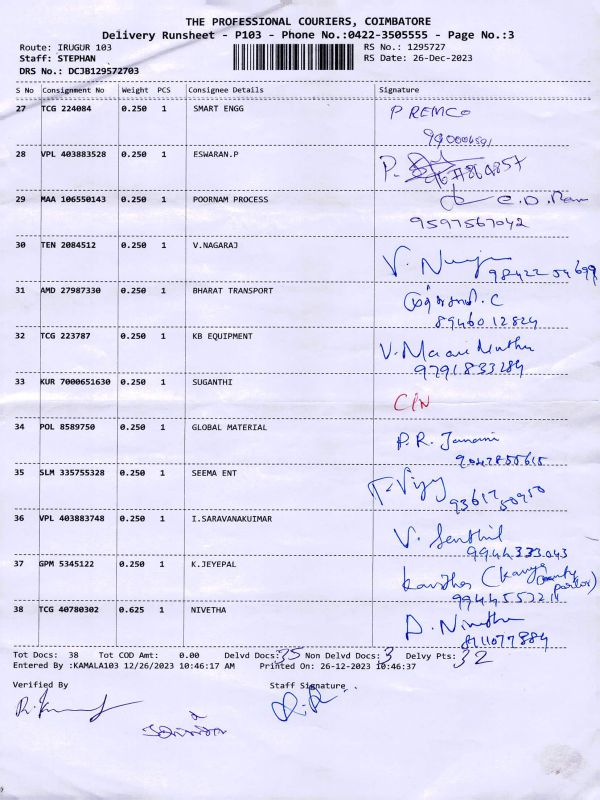 THE PROFESSIONAL COURIERS, COIMBATORE
Delivery Runsheet - P103 - Phone No.:0422-3505555 - Page No.:3
Route: IRUGUR 103 RS No.: 1295727
Staff: STEPHAN RS Date: 26-Dec-2023
DRS No.: DCJB129572703
S No Consignment No Weight PCS Consignee Details Signature
27 TCG 224084 0.250 1 SMART ENGG P REMCO
28 VPL 403883528 0.250 1 ESWARAN.P
29 MAA 106550143 0.250 1 POORNAM PROCESS
9597567042
30 TEN 2084512 0.250 1 V.NAGARAJ
31 AMD 27987330 0.250 1 BHARAT TRANSPORT
8946012824
32 TCG 223787 0.250 1 KB EQUIPMENT
9791833284
33 KUR 7000651630 0.250 1 SUGANTHI
34 POL 8589750 0.250 1 GLOBAL MATERIAL P.R. Janani
35 SLM 335755328 0.250 1 SEEMA ENT T. Vijay
36 VPL 403883748 0.250 1 I.SARAVANAKUIMAR V. Senthil
9944333043
37 GPM 5345122 0.250 1 K.JEYEPAL
38 TCG 40780302 0.625 1 NIVETHA
8111077884
Tot Docs: 38 Tot COD Amt: 0.00 Delvd Docs: 35 Non Delvd Docs: 3 Delvy Pts: 32
Entered By :KAMALA103 12/26/2023 10:46:17 AM Printed On: 26-12-2023 10:46:37
Verified By Staff Signature